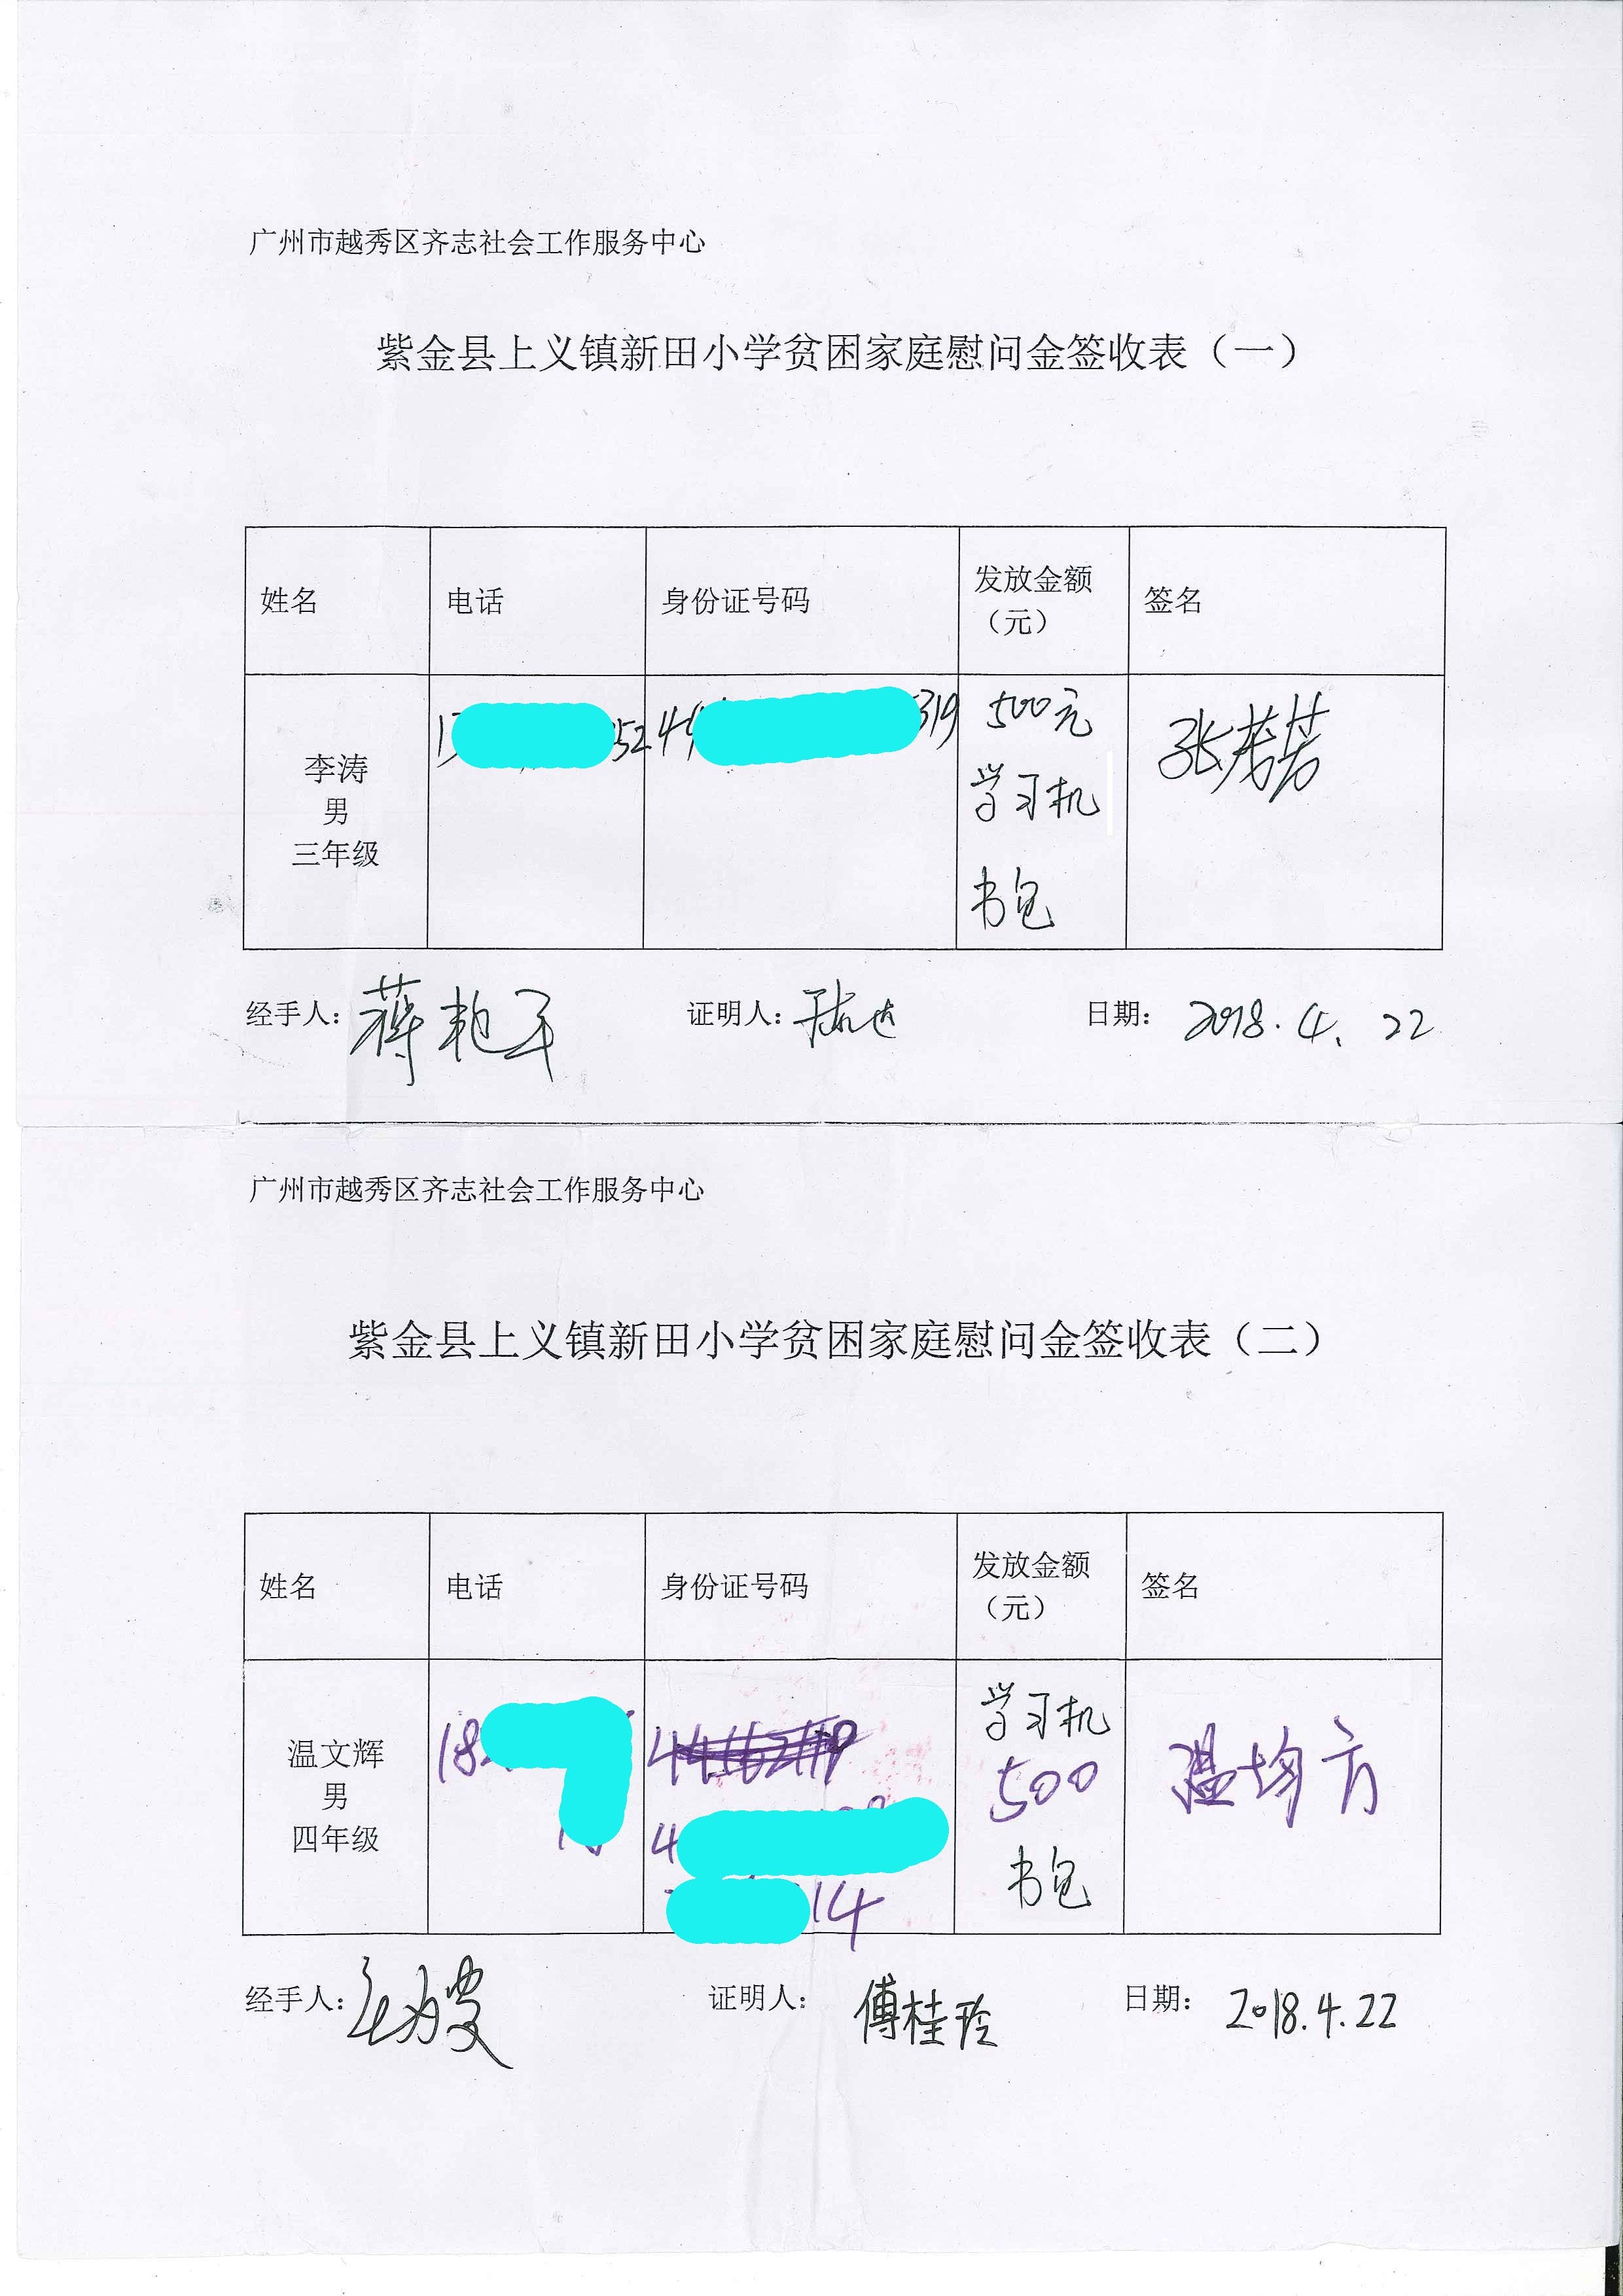 广州市越秀区齐志社会工作服务中心
紫金县上义镇新田小学贫困家庭慰问金签收表（一）
姓名 电话 身份证号码 发放金额（元） 签名
李涛
男
三年级
52
319
500元
学习机
书包
经手人：
证明人：
日期：2018.4.22
广州市越秀区齐志社会工作服务中心
紫金县上义镇新田小学贫困家庭慰问金签收表（二）
姓名 电话 身份证号码 发放金额（元） 签名
温文辉
男
四年级
18
4
14
学习机
500
书包
温均方
经手人：
证明人：傅桂玲
日期：2018.4.22